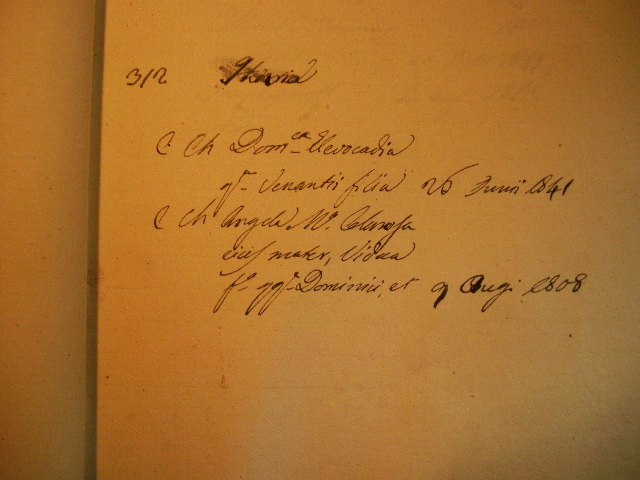 312
C Ch Dom.ca Elevocadia
qm Venantii filia 26 Junii 1841
C Ch Angela Ma.
eius mater, Vidua
Dominici, et 9 Augi 1808